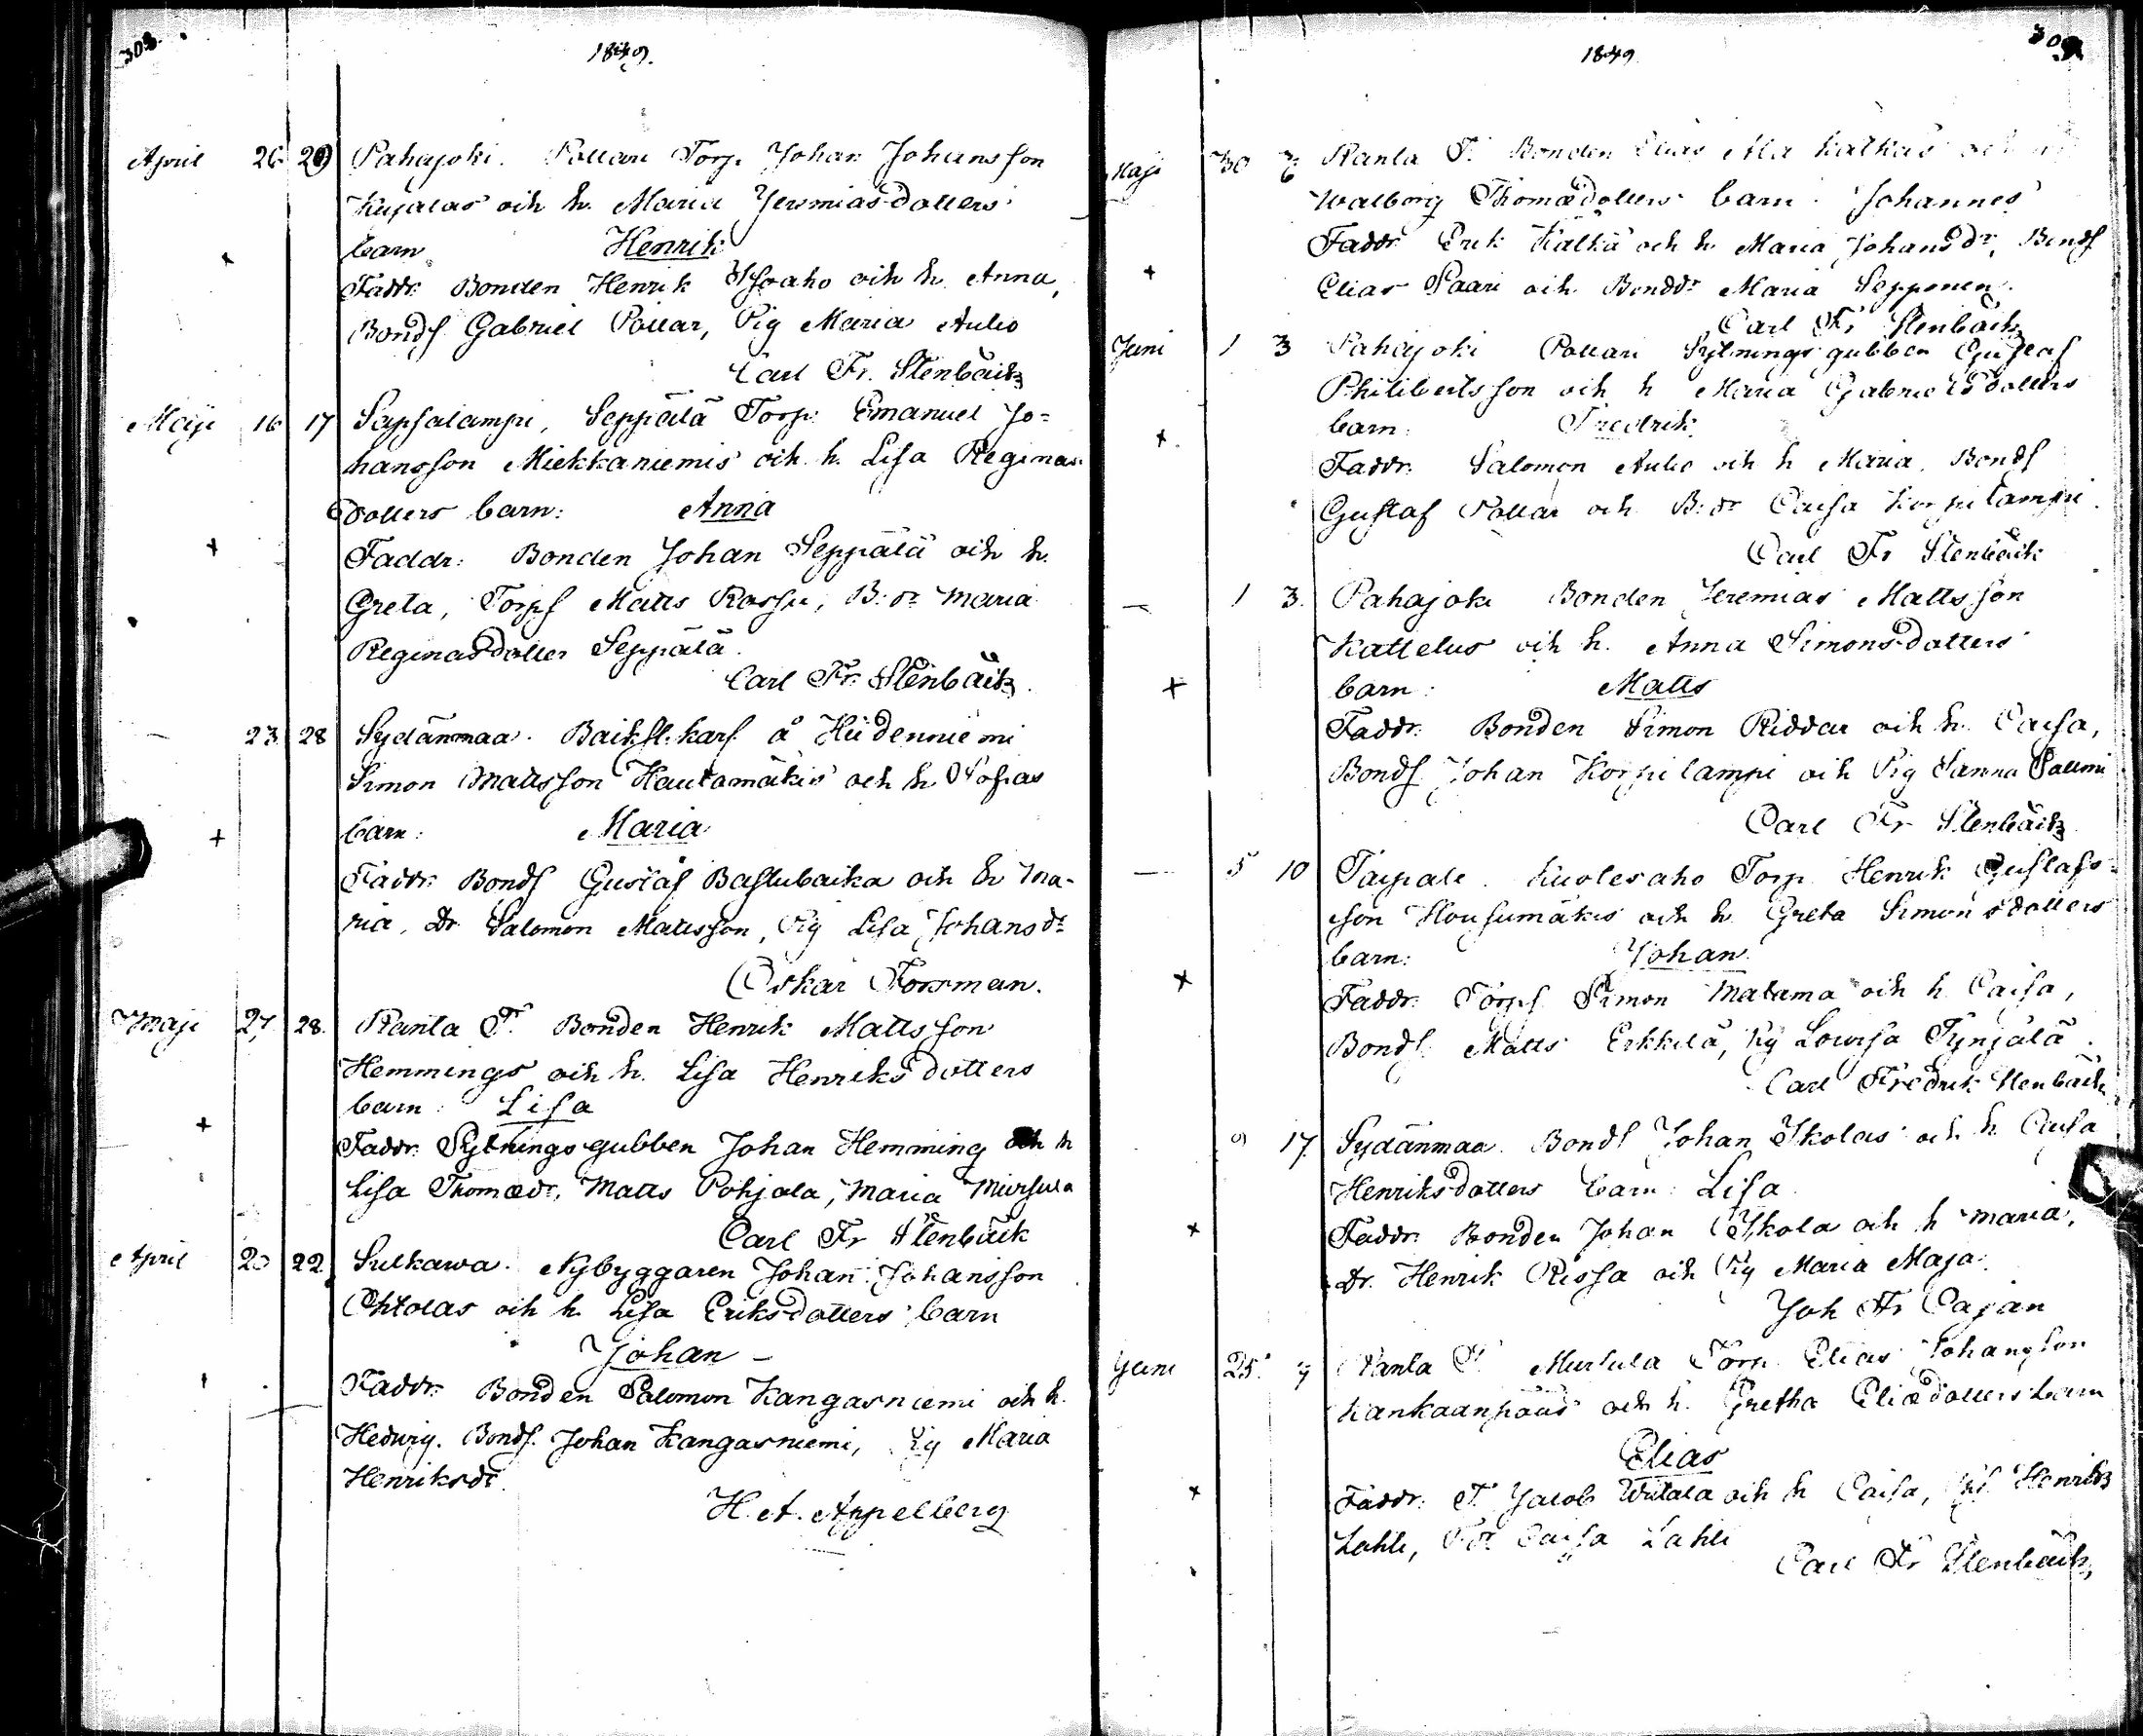 308.
1849.
April 26 29 Pahajoki. Pollari Torp. Johan Johansson
Kujalas och h. Maria Jeremiasdotters
barn Henrik
Faddr. Bonden Henrik Isoaho och h. Anna,
Bonds. Gabriel Pollar, Pig Maria Aulio
Carl Fr. Stenbäck
Maji 16 17 Sapsalampi, Seppälä Torp. Emanuel Jo-
hansson Miekkaniemis och h. Lisa Reginas
dotters barn: Anna
Faddr: Bonden Johan Seppälä och h.
Greta, Torps Matts Rossu, B:dr Maria
Reginasdotter Seppälä.
Carl Fr. Stenbäck.
— 23 28 Sydänmaa. Backst.karl å Hiidenniemi
Simon Mattsson Hautamäkis och h. Sofias
barn: Maria
Faddr. Bonds Gustaf Bastubacka och h Ma-
ria, Dr. Salomon Mattsson, Pig Lisa Johansdr
Oskar Forsman.
Maji 27 28. Ranta T. Bonden Henrik Mattsson
Hemmings och h. Lisa Henriksdotters
barn: Lisa
Faddr. Sytningsgubben Johan Hemming och h
Lisa Thomædr, Matts Pohjala, Maria Mursula
Carl Fr Stenbäck
April 20 22 Sulkawa. Nybyggaren Johan Johansson
Ohtolas och h. Lisa Eriksdotters barn
Johan —
Faddr. Bonden Salomon Kangasniemi och h.
Hedvig. Bonds. Johan Kangasniemi, Pig Maria
Henriksdr.
H. A. Appelberg
1849
309
Maji 30 Ranta T. Bonden Elias Ala Kätkäs och
Walborg Thomædotters barn Johannes
Faddr Erik Kätkä och h. Maria Johansdr, Bonds
Elias Saari och Bonddr Maria Sepponen.
Carl Fr Stenbäck
Juni 1 3 Pahajoki Pollari Sytningsgubben Gustaf
Philibertsson och h Maria Gabrielsdotters
barn: Fredrik
Faddr. Salomon Aulio och h Maria. Bonds
Gustaf Pollar och B:dr Caisa Korpilampi.
Carl Fr Stenbäck
— 1 3. Pahajoki Bonden Jeremias Mattsson
Kattelus och h. Anna Simonsdotters
barn: Matts
Faddr. Bonden Simon Riddar och h. Caisa,
Bonds. Johan Korpilampi och Pig Sanna
Carl Fr Stenbäck
— 5 10 Taipale. Kuolesaho Torp Henrik Gustafs-
son Housumäkis och h. Greta Simonsdotters
barn: Johan
Faddr. Torps Simon Matama och h Caisa,
Bonds. Matts Erkkilä, Pig Lovisa Tynjälä.
Carl Fredrik Stenbäck
9 17. Sydänmaa. Bonds Johan Skolas och h. Caisa
Henriksdotters barn: Lisa
Faddr. Bonden Johan Skola och h Maria,
Dr. Henrik Rissa och Pig Maria Maja.
Joh Fr Cajan
Juni 25. Ranta T. Mursula Torp. Elias Johansson
Kankaanpääs och h. Gretha Eliædotters barn
Elias
Faddr. T. Jacob Wiitala och h Caisa, Henrik
Lahti, Caisa Lahti
Carl Fr Stenbäck